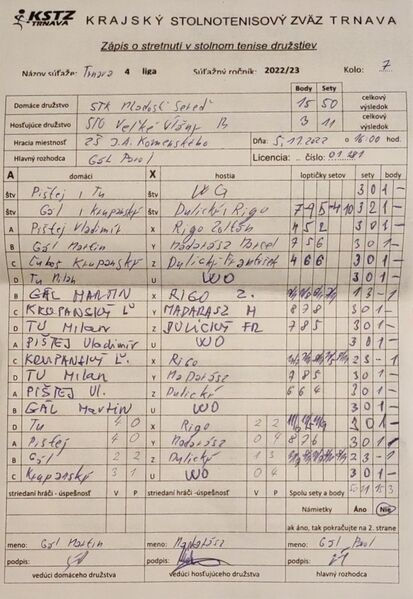 KSTZ TRNAVA KRAJSKÝ STOLNOTENISOVÝ ZVÄZ TRNAVA
Zápis o stretnutí v stolnom tenise družstiev
Názov súťaže: Trnava 4 liga Súťažný ročník: 2022/23 Kolo: 7
Body Sety
Domáce družstvo STK Mladosť Sereď 15 50 celkový výsledok
Hosťujúce družstvo STO Veľké Úľany B 3 11 celkový výsledok
Hracia miestnosť ZŠ J.A. Komenského Dňa: 5.11.2022 o 16:00 hod.
Hlavný rozhodca Gál Licencia: číslo: 01
A domáci X hostia loptičky setov sety body
štv Pištej, Tu WO 3 0 1 -
štv Gál, Krupanský Dulický, Rigo 7 -9 5 -4 10 3 2 1 -
A Pištej Vladimír X Rigo Zoltán 4 5 2 3 0 1 -
B Gál Martin Y Madarász 7 5 6 3 0 1 -
C Ľuboš Krupanský Z Dulický František 4 6 6 3 0 1 -
D Tu Milan U WO 3 0 1 -
B GÁL MARTIN X RIGO Z. 1 3 - 1
C KRUPANSKÝ Ľ. Y MADARASZ M 8 7 8 3 0 1 -
D TU Milan Z DULICKÝ FR 7 8 5 3 0 1 -
A PIŠTEJ Vladimír U WO 3 0 1 -
C KRUPANSKÝ Ľ. X Rigo 2 3 - 1
D TU Milan Y Madarász 7 8 5 3 0 1 -
A PIŠTEJ Vl. Z Dulický 6 6 4 3 0 1 -
B GÁL Martin U WO 3 0 1 -
D Tu 4 0 X Rigo 2 2 3 0 1 -
A Pištej 4 0 Y Madarász 0 4 8 7 6 3 0 1 -
B Gál 2 2 Z Dulický 1 3 2 3 - 1
C Krupanský 3 1 U WO 0 4 3 0 1 -
striedaní hráči - úspešnosť V P striedaní hráči - úspešnosť V P Spolu sety a body 50 11 15 3
Námietky Áno Nie
ak áno, tak pokračujte na 2. strane
meno: Gál Martin meno: Madarász meno: Gál
podpis: podpis: podpis:
vedúci domáceho družstva vedúci hosťujúceho družstva hlavný rozhodca